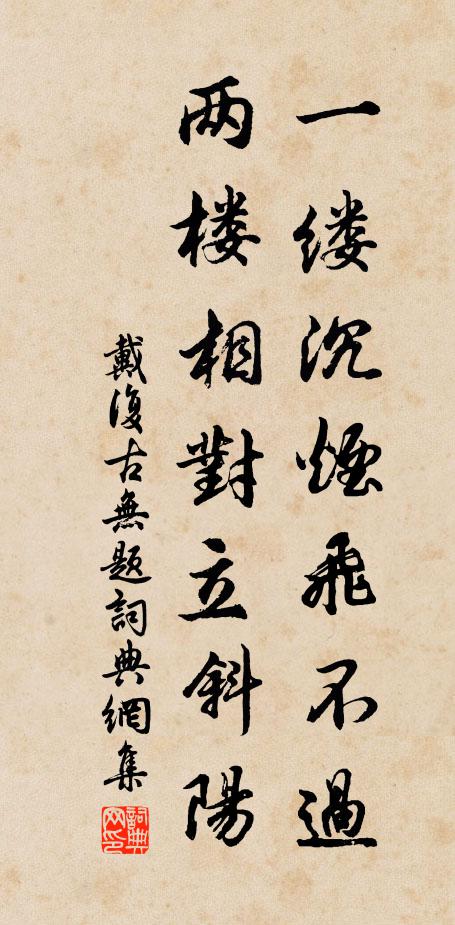 一缕沉煙飛不過
两楼相對立斜陽
戴復古無題詞典網集
詞典網印